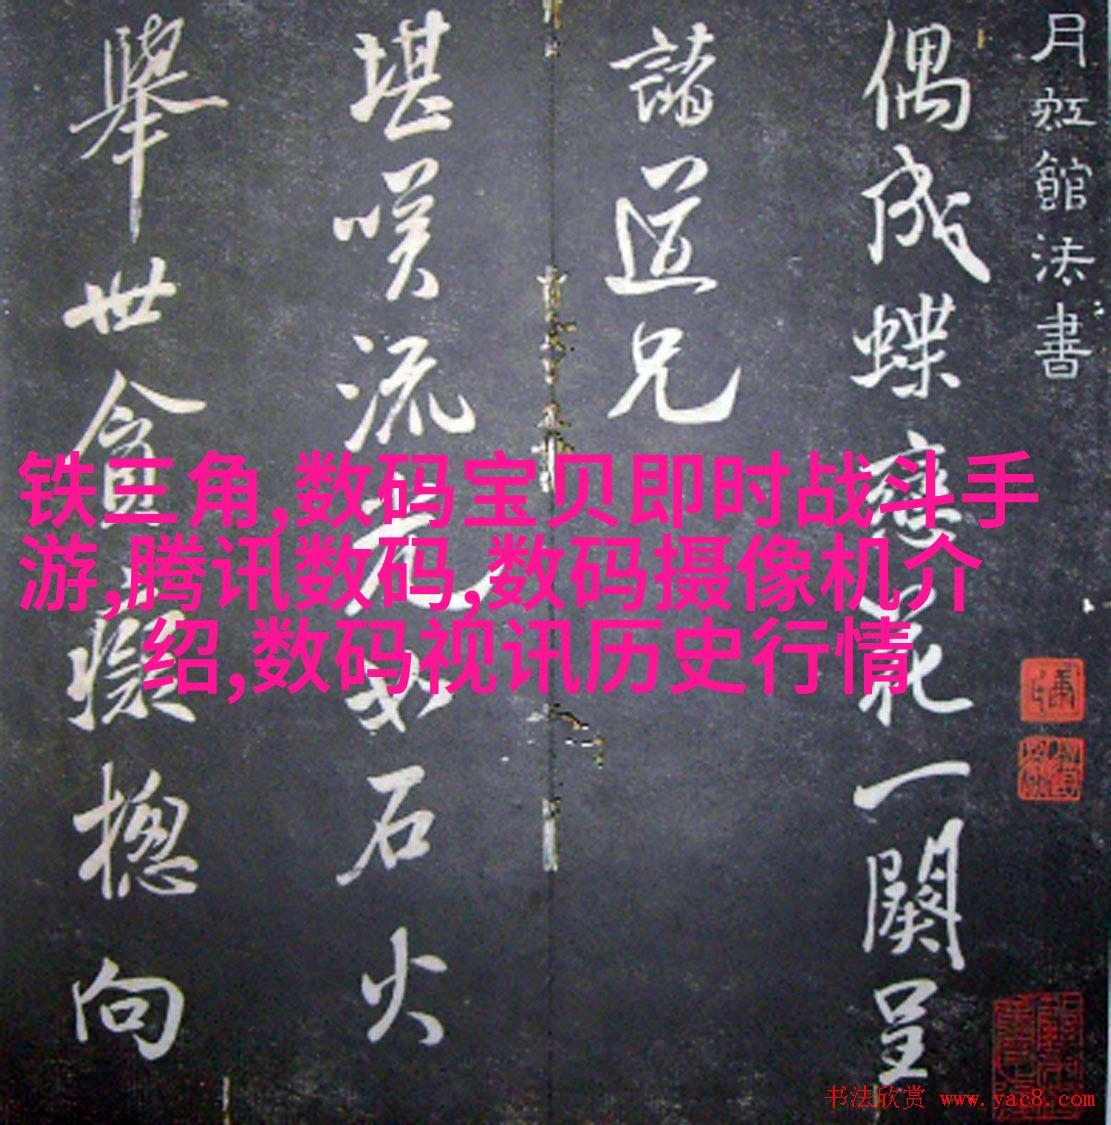 月虹館法書
偶成蝶戀花一闋呈
諸道兄
堪嘆流光如石火
舉世貪癡揔向
铁三角,数码宝贝即时战斗手
游,腾讯数码,数码摄像机介
绍,数码视讯历史行情
书法欣赏 www.yac8.com